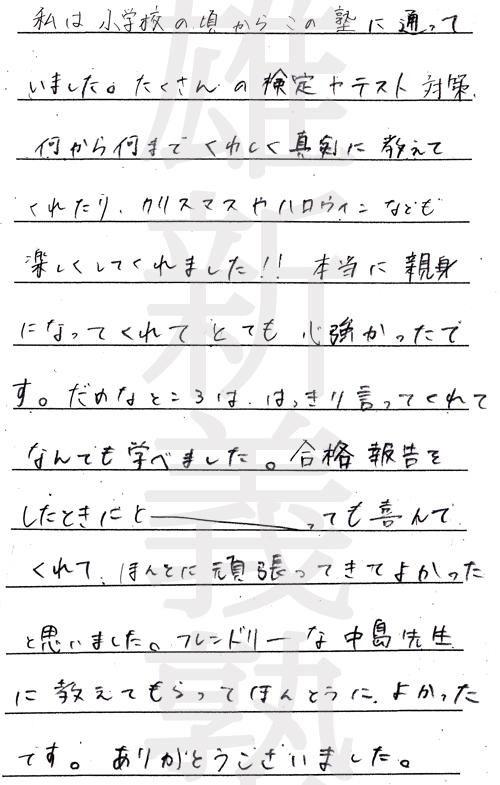 私は小学校の頃からこの塾に通って
いました。たくさんの検定やテスト対策、
何から何までくわしく真剣に教えて
くれたり、クリスマスやハロウィンなども
楽しくしてくれました!! 本当に親身
になってくれてとても心強かったで
す。だめなところは、はっきり言ってくれて
なんでも学べました。合格報告を
したときにと――っても喜んで
くれて、ほんとに頑張ってきてよかった
と思いました。フレンドリーな中島先生
に教えてもらってほんとうに、よかった
です。ありがとうございました。
雄新義塾